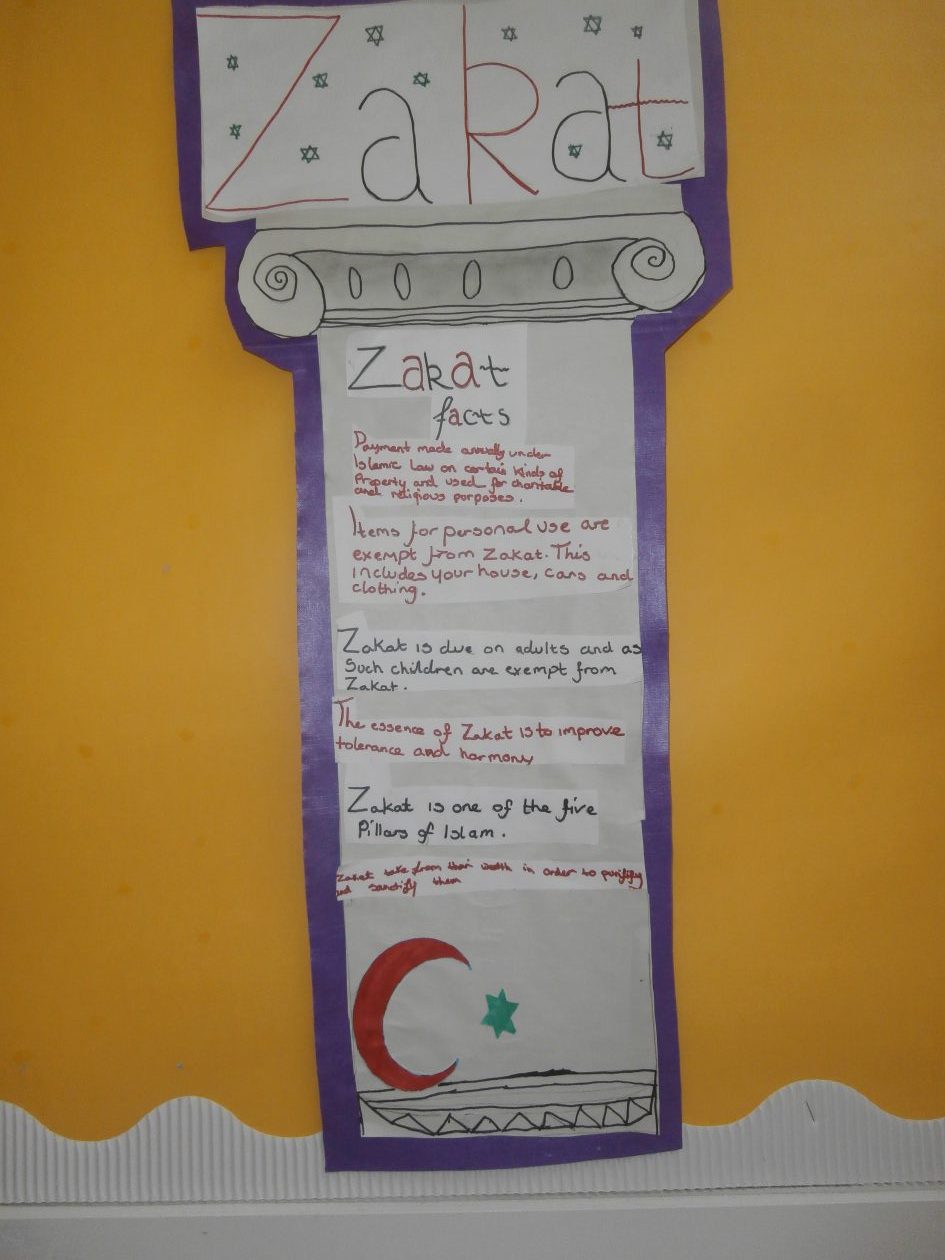 Zakat
Zakat
facts
Payment made anually under
Islamic Law on certain kinds of
Property and used for charitable
and religious porposes.
Items for personal use are
exempt from Zakat. This
includes your house, cars and
clothing.
Zakat is due on adults and as
Such children are exempt from
Zakat.
The essence of Zakat is to improve
tolerance and harmony
Zakat is one of the five
Pillars of Islam.
Zakat take from their wealth in order to purifify
and sanctify them